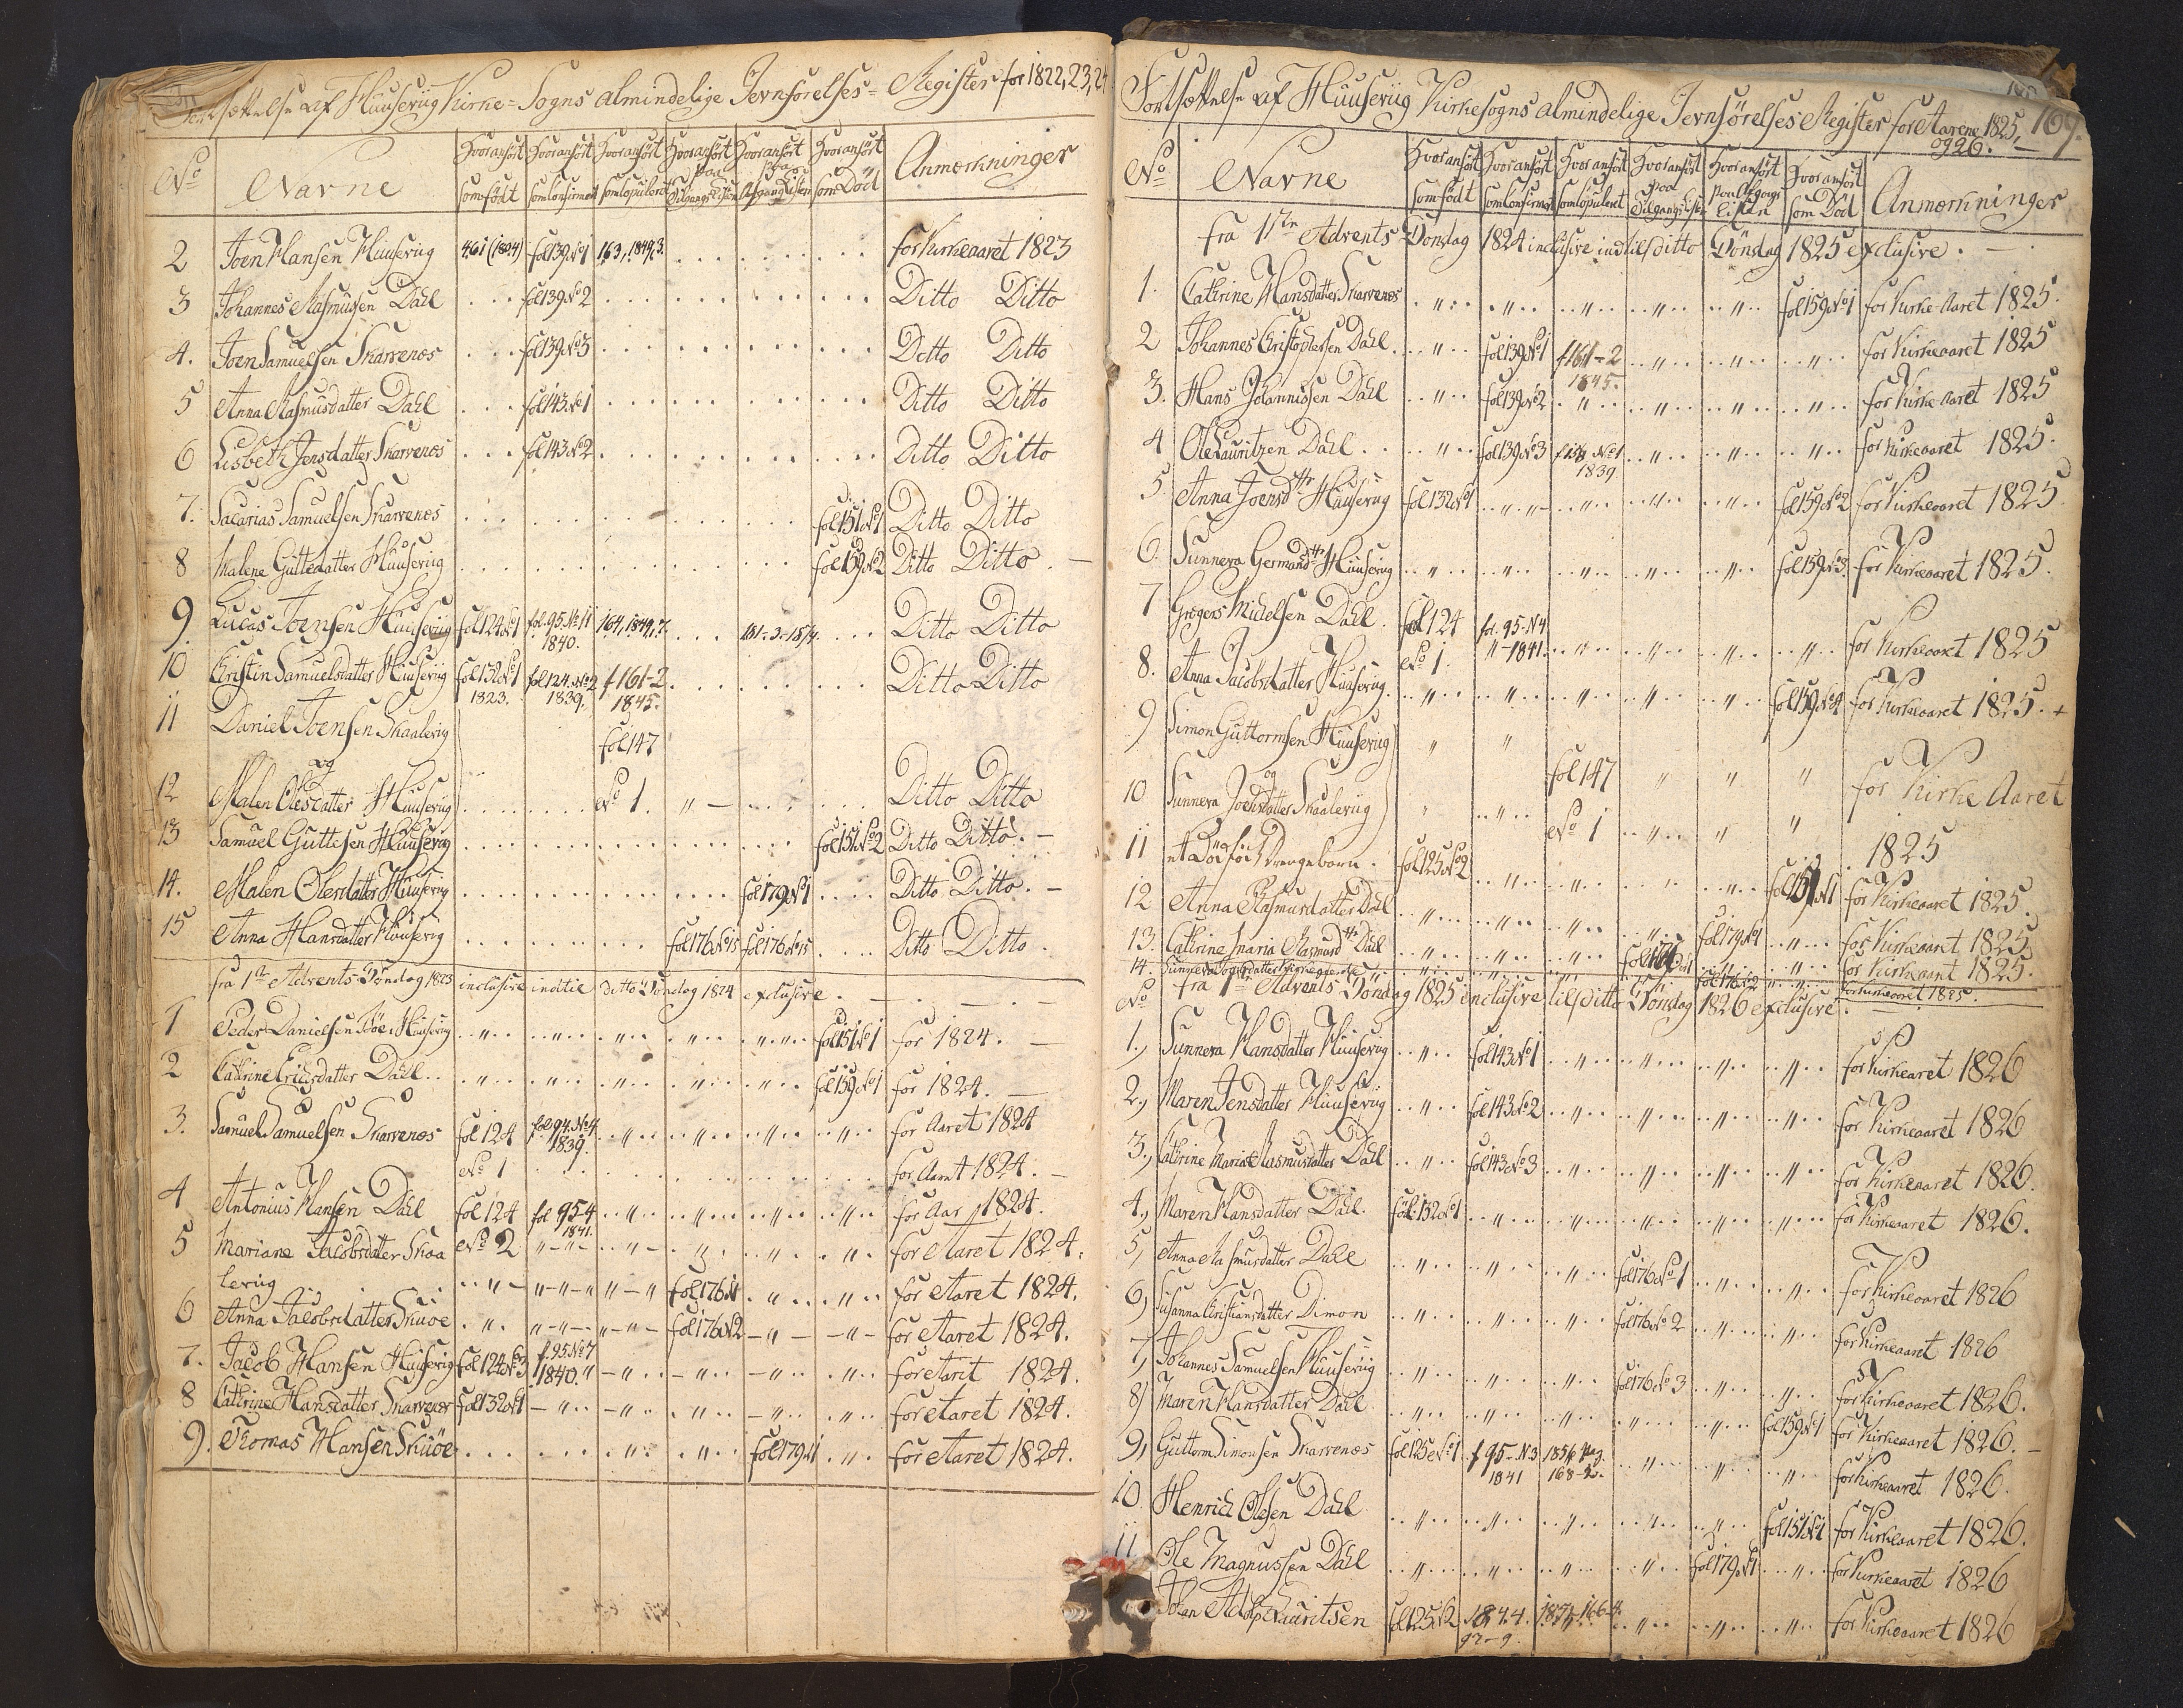 Fortsættelse af Huuseviig Kirke-Sogns almindelige Jevnførelses-Register for 1822, 23, 24
No Navne Hvor anført som født Hvor anført som Confirmert Hvor anført som Copuleret Hvor anført paa Tilgangs Listen Hvor anført paa Afgangs Listen Hvor anført som Død Anmærkninger
2 Joen Hansen Huuseviig fol 139 No 1 163, 1849, 3. for Kirkeaaret 1823
3 Johannes Rasmussen Dahl fol 139 No 2 Ditto Ditto
4. Joen Samuelsen Skarvenæs fol 139 No 3 Ditto Ditto
5 Anna Rasmusdatter Dahl fol 143 No 1 Ditto Ditto
6 Lisbeth Jensdatter Skarvenæs fol 143 No 2 Ditto Ditto
7. Sacarias Samuelsen Skarvenæs fol 151 No 1 Ditto Ditto
8 Malene Guttedatter Huusevig fol 159 No 2 Ditto Ditto
9 Lucas Joensen Huusevig fol 124 No 1 fol. 95 No 11 1840. 164, 1849, 7. Ditto Ditto
10 Christin Samuelsdatter Huusevig fol 132 No 1 1823. fol 124. No 2 1839. f 161-2 1845. Ditto Ditto
11 Daniel Joensen Skaalevig fol 147
og
12 Malen Olesdatter Huusevig No 1. Ditto Ditto
13 Samuel Guttesen Huusevig fol 151 No 2 Ditto Ditto.
14. Malen Olesdatter Huusevig fol 179 No 1 Ditto Ditto.
15 Anna Hansdatter Huusevig fol 176 No 15 fol 176 No 15 Ditto Ditto.
fra 1ste Advents-Søndag 1823 inclusive indtil ditto Søndag 1824 exclusive.
1 Peder Danielsen Bøe i Huusevig fol 151 No 1 for 1824.
2 Cathrine Erichsdatter Dahl fol 159 No 1 for 1824.
3. Samuel Samuelsen Skarvenæs fol 124 fol 94. No 4 1839. for Aaret 1824
No 1 for Aaret 1824.
4 Antonius Hansen Dahl fol 124 fol 95-4 1841. for Aar 1824.
5 Mariane Jacobsdatter Skaa No 2 for Aaret 1824.
levig fol 176 No 1 for Aaret 1824.
6 Anna Jacobsdatter Skuøe fol 176 No 2 for Aaret 1824.
7. Jacob Hansen Huusevig fol 124 No 3 f. 95 No 7 1840. for Aaret 1824.
8 Cathrine Hansdatter Skarvenæs fol 132 No 1 for Aaret 1824.
9. Thomas Hansen Skuøe fol 179 No 1 for Aaret 1824.
Fortsættelse af Huuseviig Kirkesogns almindelige Jevnførelses Register for Aarene 1825, 169.
og 26.
No Navne Hvor anført som født Hvor anført som Confirmert Hvor anført som Copuleret Hvor anført paa Tilgangsliste Hvor anført paa Afgangs Listen Hvor anført som Død Anmærkninger
fra 1ste Advents-Søndag 1824 inclusive indtil ditto Søndag 1825 exclusive.
1. Cathrine Hansdatter Skarvenæs fol 159 No 1 for Kirke Aaret 1825.
2 Johannes Christophersen Dahl fol 139 No 1 f 161-2 1845. for Kirkeaaret 1825
3. Hans Johannissen Dahl fol 139 No 2 for Kirke Aaret 1825
4 Ole Lauritzen Dahl fol 139 No 3 No 1 1839 for Kirkeaaret 1825.
5. Anna Joensdtr Huusevig fol 132 No 1 fol 159 No 2 for Kirkeaaret 1825.
6. Sunneva Germandsdtr Huusevig fol 159 No 3. for Kirkeaaret 1825.
7 Grægers Michelsen Dahl. fol 124 fol. 95-N 4
No 1. 1841. for Kirkeaaret 1825
8. Anna Jacobsdatter Huusevig. fol 159 No 4 for Kirkeaaret 1825. +
9 Simon Guttormsen Huusevig fol 147 for Kirke Aaret
og
10 Sunneva Joensdatter Skaalevig No 1 1825
11 et Dødfød Drengebarn. fol 125 No 2 fol 151 No 1 for Kirkeaaret 1825.
12 Anna Rasmusdatter Dahl fol 179 No 1 for Kirkeaaret 1825
13. Cathrine Maria Rasmusdtr Dahl for Kirkeaaret 1825.
14. fol 176 No 2 for Kirkeaaret 1825.
No fra 1ste Advents Søndag 1825 inclusive til ditto Søndag 1826 exclusive.
1., Sunneva Hansdatter Huusevig fol 143 No 1 for Kirkeaaret 1826
2., Maren Jensdatter Huusevig fol 143 No 2 for Kirkeaaret 1826
3., Cathrine Maria Rasmusdatter Dahl fol 143 No 3 for Kirkeaaret 1826.
4., Maren Hansdatter Dahl. fol 132 No 1 for Kirkeaaret 1826.
5, Anna Rasmusdatter Dahl fol 176 No 1 for Kirkeaaret 1826
6, Susanna Christiansdatter Dimon fol 176 No 2 for Kirkeaaret 1826
7, Johannes Samuelsen Huusevig fol 176 No 3 for Kirkeaaret 1826.
8) Maren Hansdatter Dahl fol 159 No 1 for Kirkeaaret 1826.
9, Guttorm Simonsen Skarvenæs fol 125 No 1 f 95-N 3 1841 1856 168-3. for Kirkeaaret 1826.
10. Henrich Olesen Dahl fol 151 No 1 for Kirkeaaret 1826.
11 Ole Magnussen Dahl fol 179 No 1 for Kirkeaaret 1826
Johan Adolph Lauritsen fol 125 No 2 1844. 97-9. 166-4. for Kirkeaaret 1826